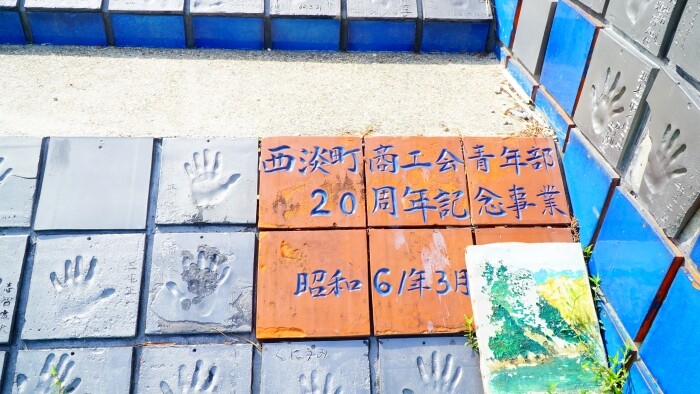 西淡町商工会青年部
20周年記念事業
昭和61年3月
くにふみ